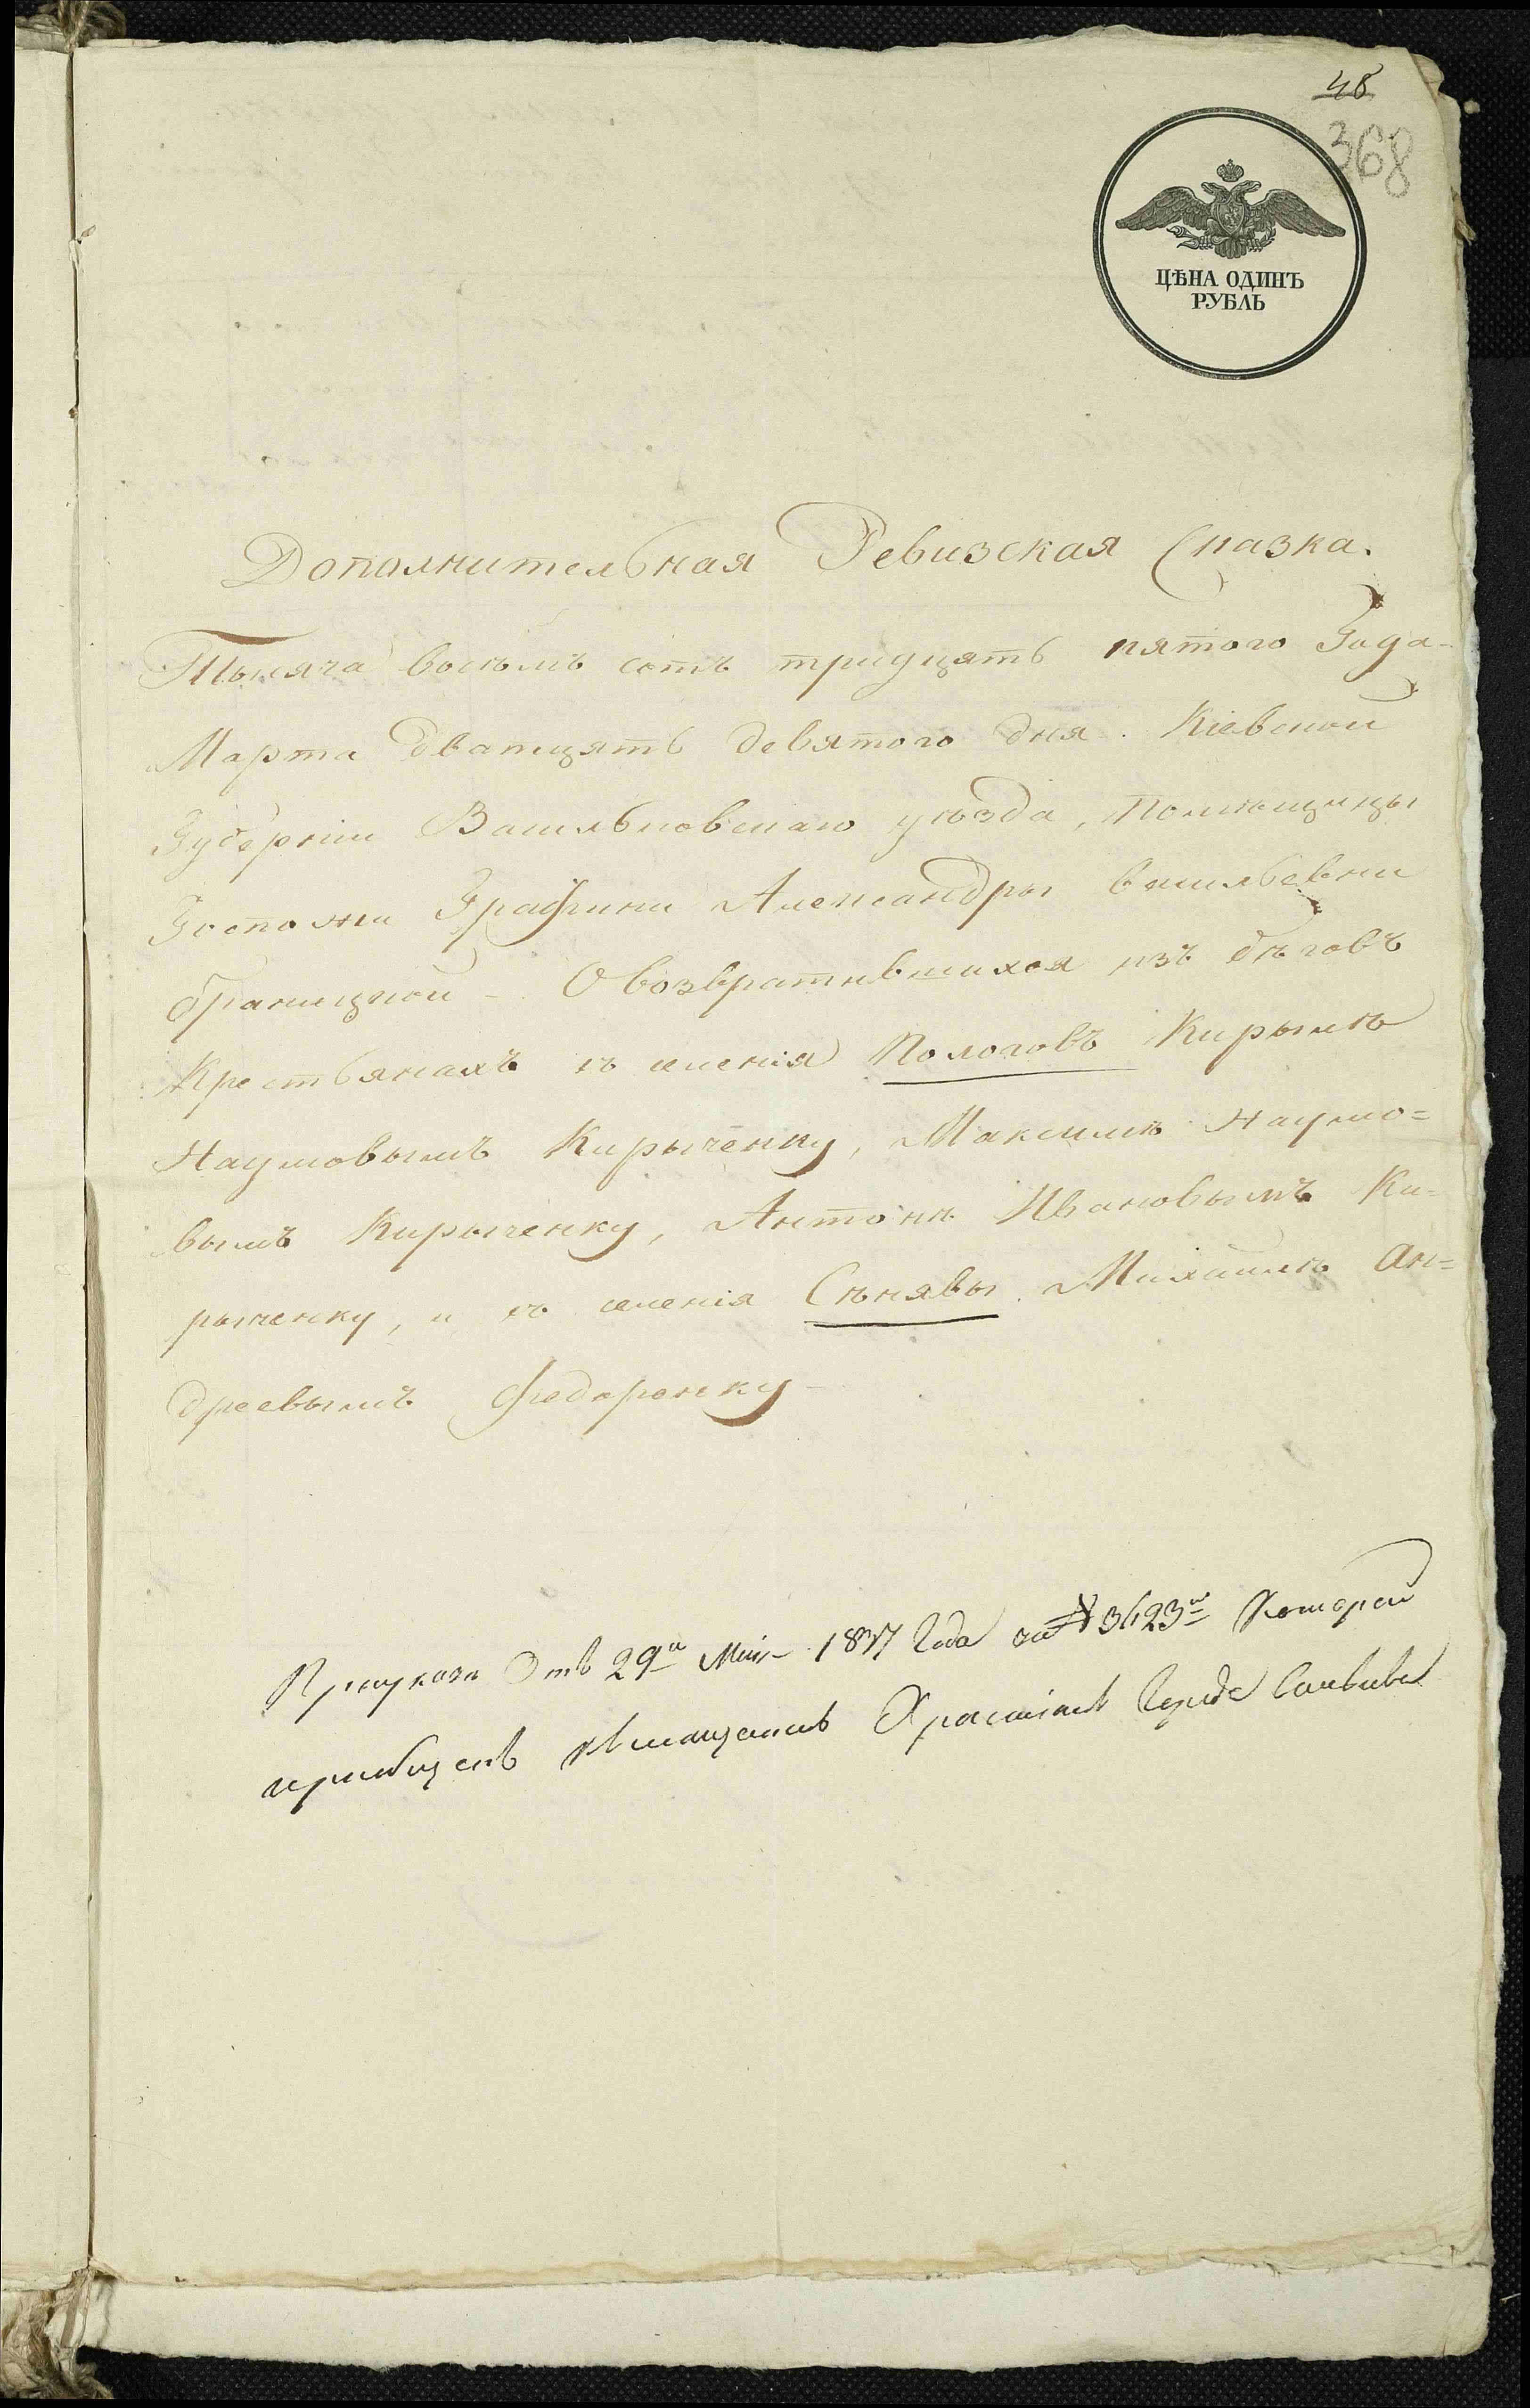 48
368
ЦѢНА ОДИНЪ
РУБЛЬ
Дополнительная Ревизская Сказка.
Тысяча восѣмъ сотъ тридцять пятого Года
Марта дватцять девятого дня. Кіевской
Губерніи Васильковскаго уѣзда, Помѣщицы
Госпожи Графини Александры Васильевни
Браницкой - О возвратившихся изъ бѣговъ
Крестьянахъ съ селенія Пологовъ Кирылѣ
Наумовымъ Кирыченку, Максимѣ Наумо=
вымъ Кирыченку, Антонѣ Ивановымъ Ки=
рыченку, и съ селенія Сѣнявы Михайлѣ Ан=
дреевымъ Федоренку
При указѣ Отъ 29го 1837 Года за № 3623м Которой